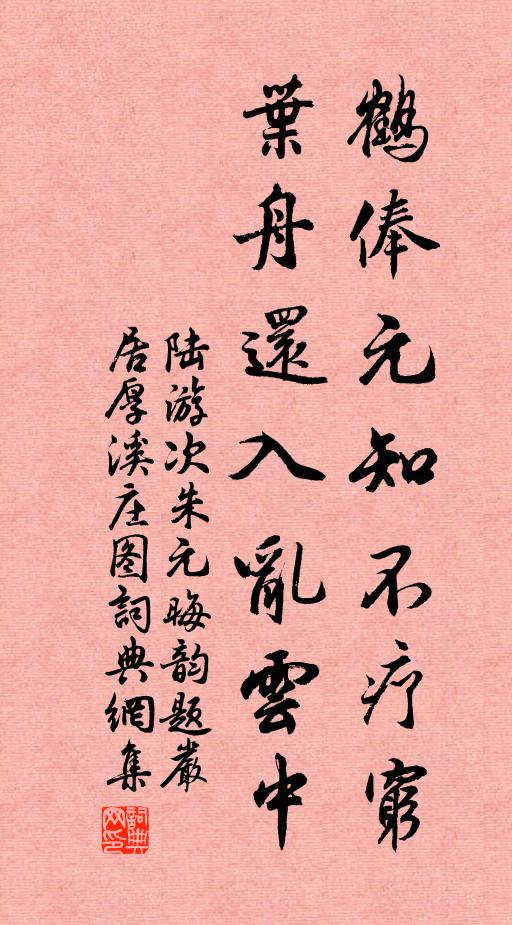 鶴俸元知不疗窮
葉舟還入亂雲中
陆游次朱元晦韵题嚴
居厚溪庄图詞典網集
詞典
网印